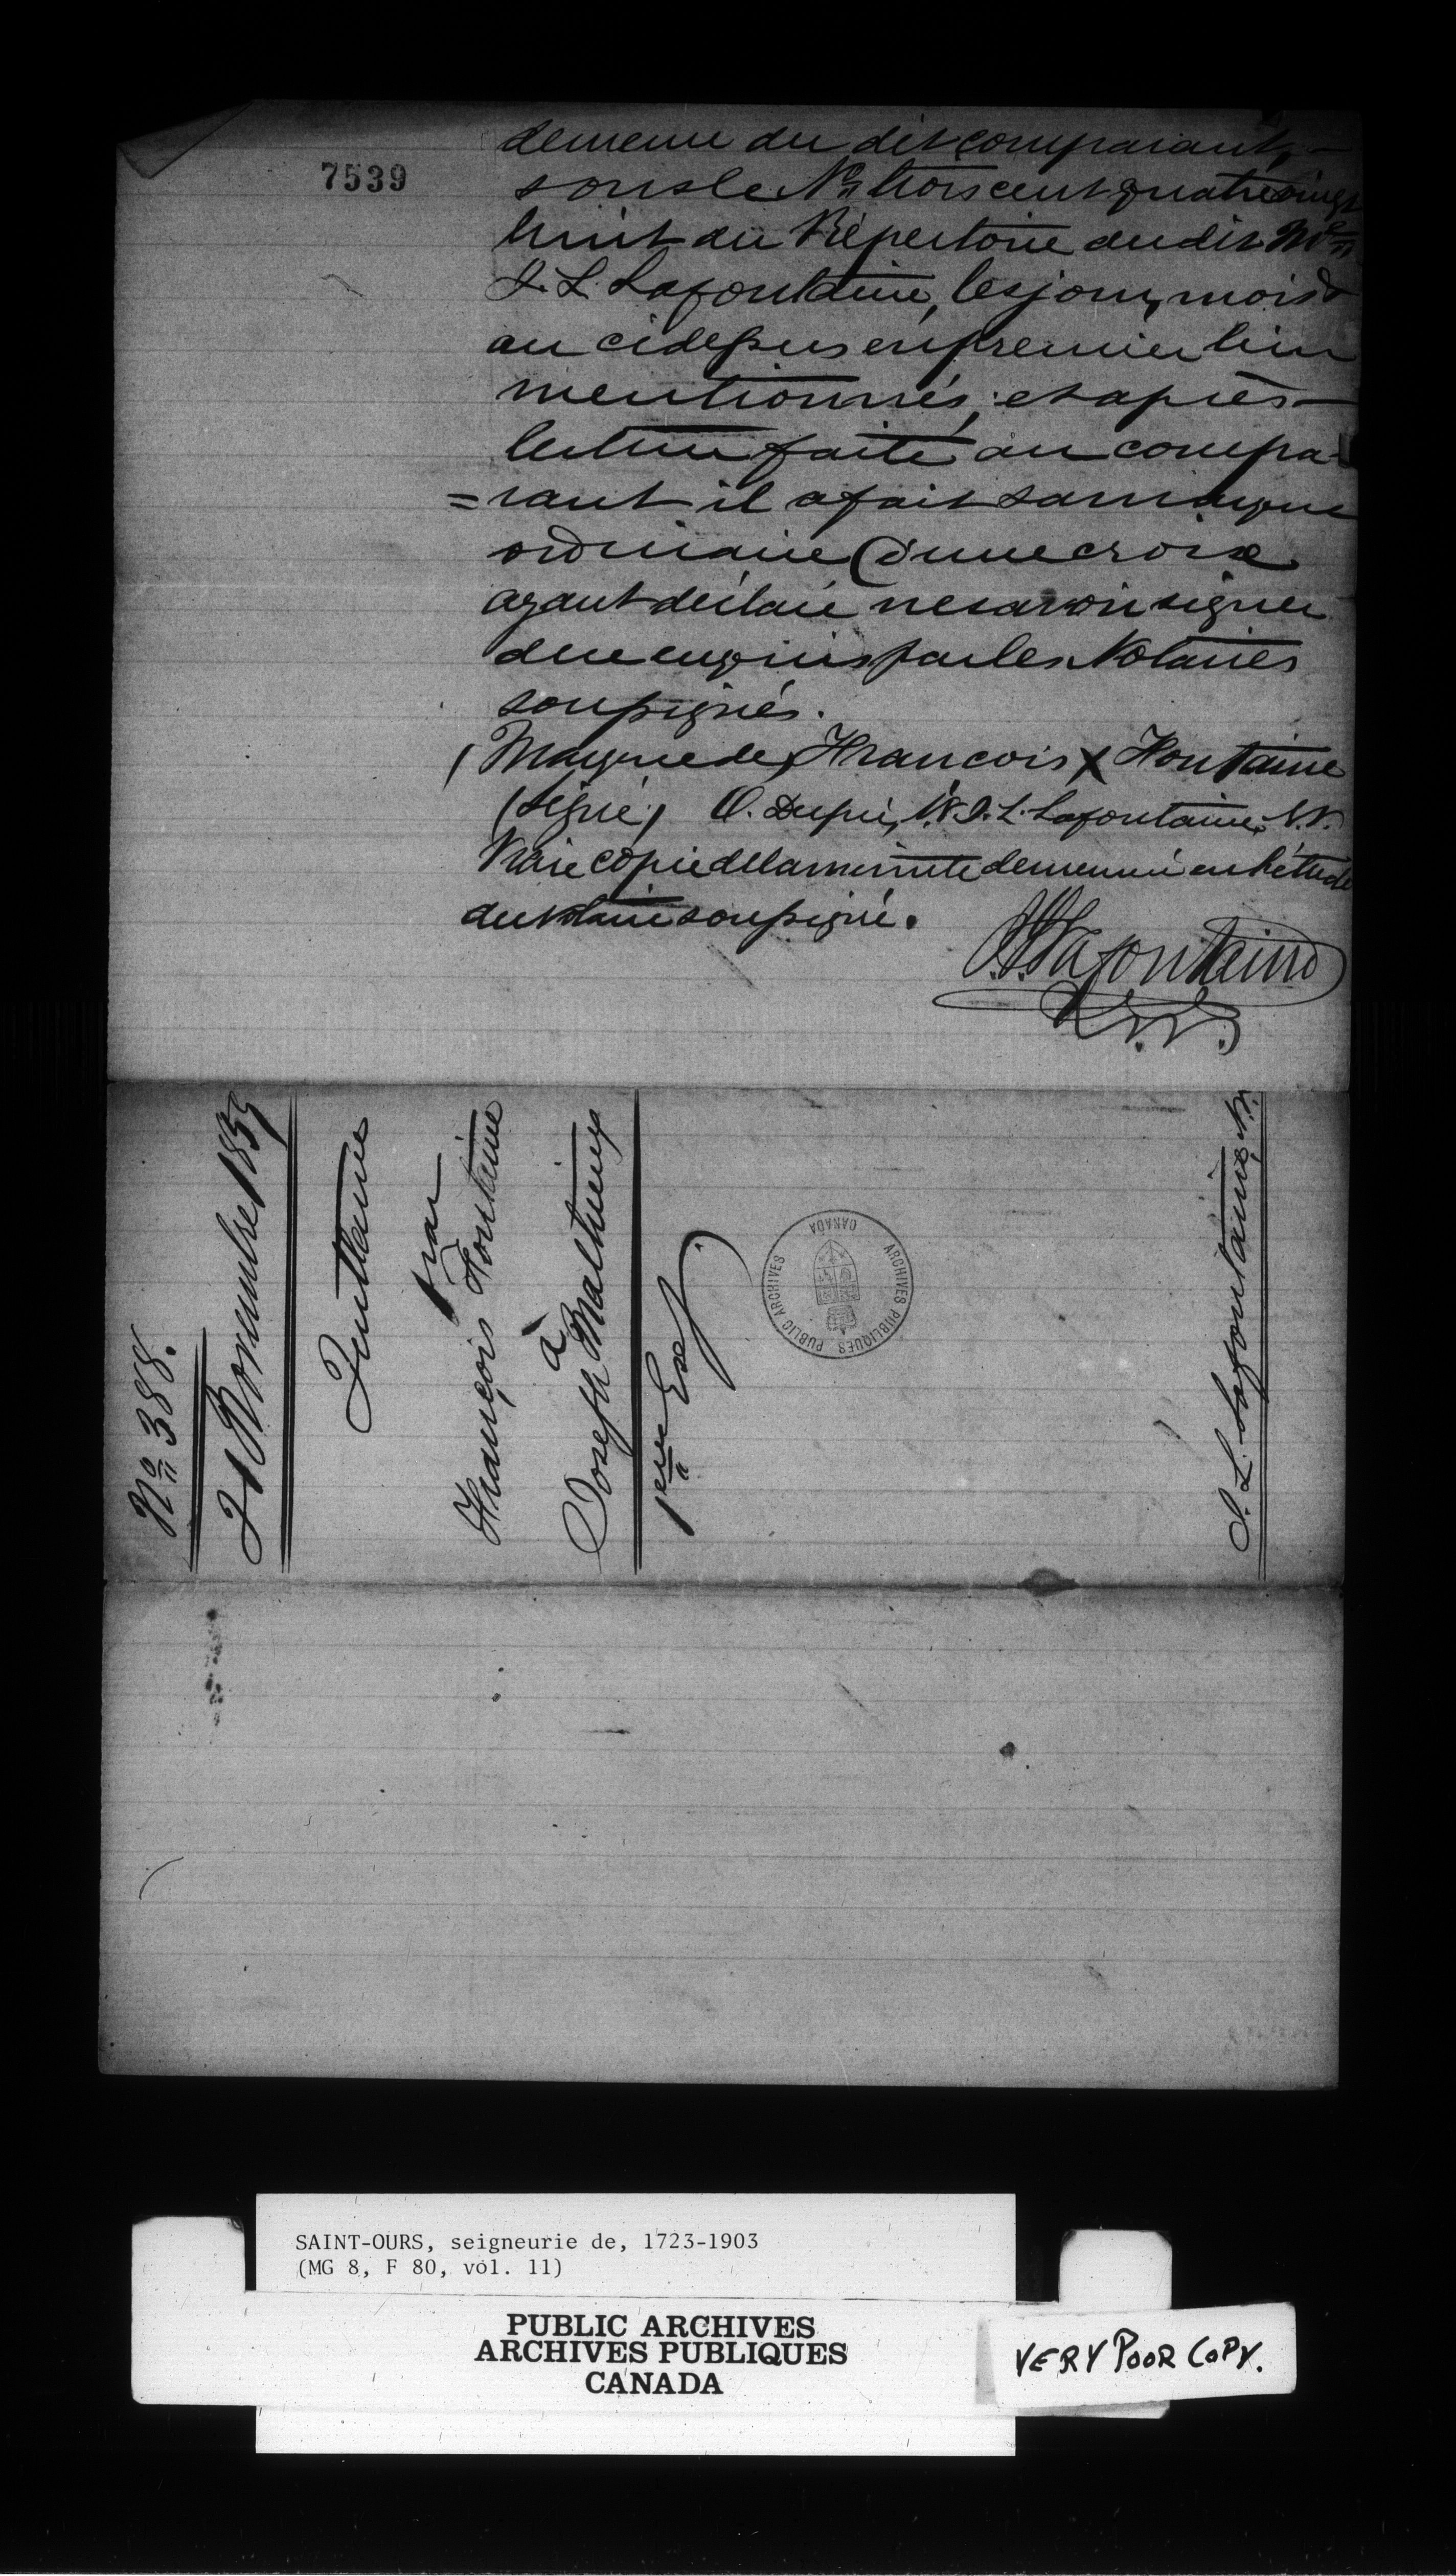 7539
demeure du dit comparant, —
sous le No trois cent quatrevingt
huit du Répertoire du dit Me
L. Lafontaine, les jour, mois &
an cidessus en premier lieu
mentionnés; et après —
lecture faite au compa-
=rant il a fait sa marque
ordinaire d'une croix
ayant déclaré ne savoir signer
de ce enquis par les Notaires
soussignés.
(Marque de, François X Fontaine
(Signé,) O. Dupré, N.P. L. Lafontaine, N.P.
Vraie copie de la minute demeurée en l'étude
du Notaire soussigné.
Lafontaine
N.P.
No 388.
21 Novembre 1859
Quittance
par
François Fontaine
à
Joseph Mathieu
1ère Exp
L. Lafontaine, N.P.
PUBLIC ARCHIVES ARCHIVES PUBLIQUES CANADA
SAINT-OURS, seigneurie de, 1723-1903
(MG 8, F 80, vol. 11)
PUBLIC ARCHIVES
ARCHIVES PUBLIQUES
CANADA
VERY POOR COPY.